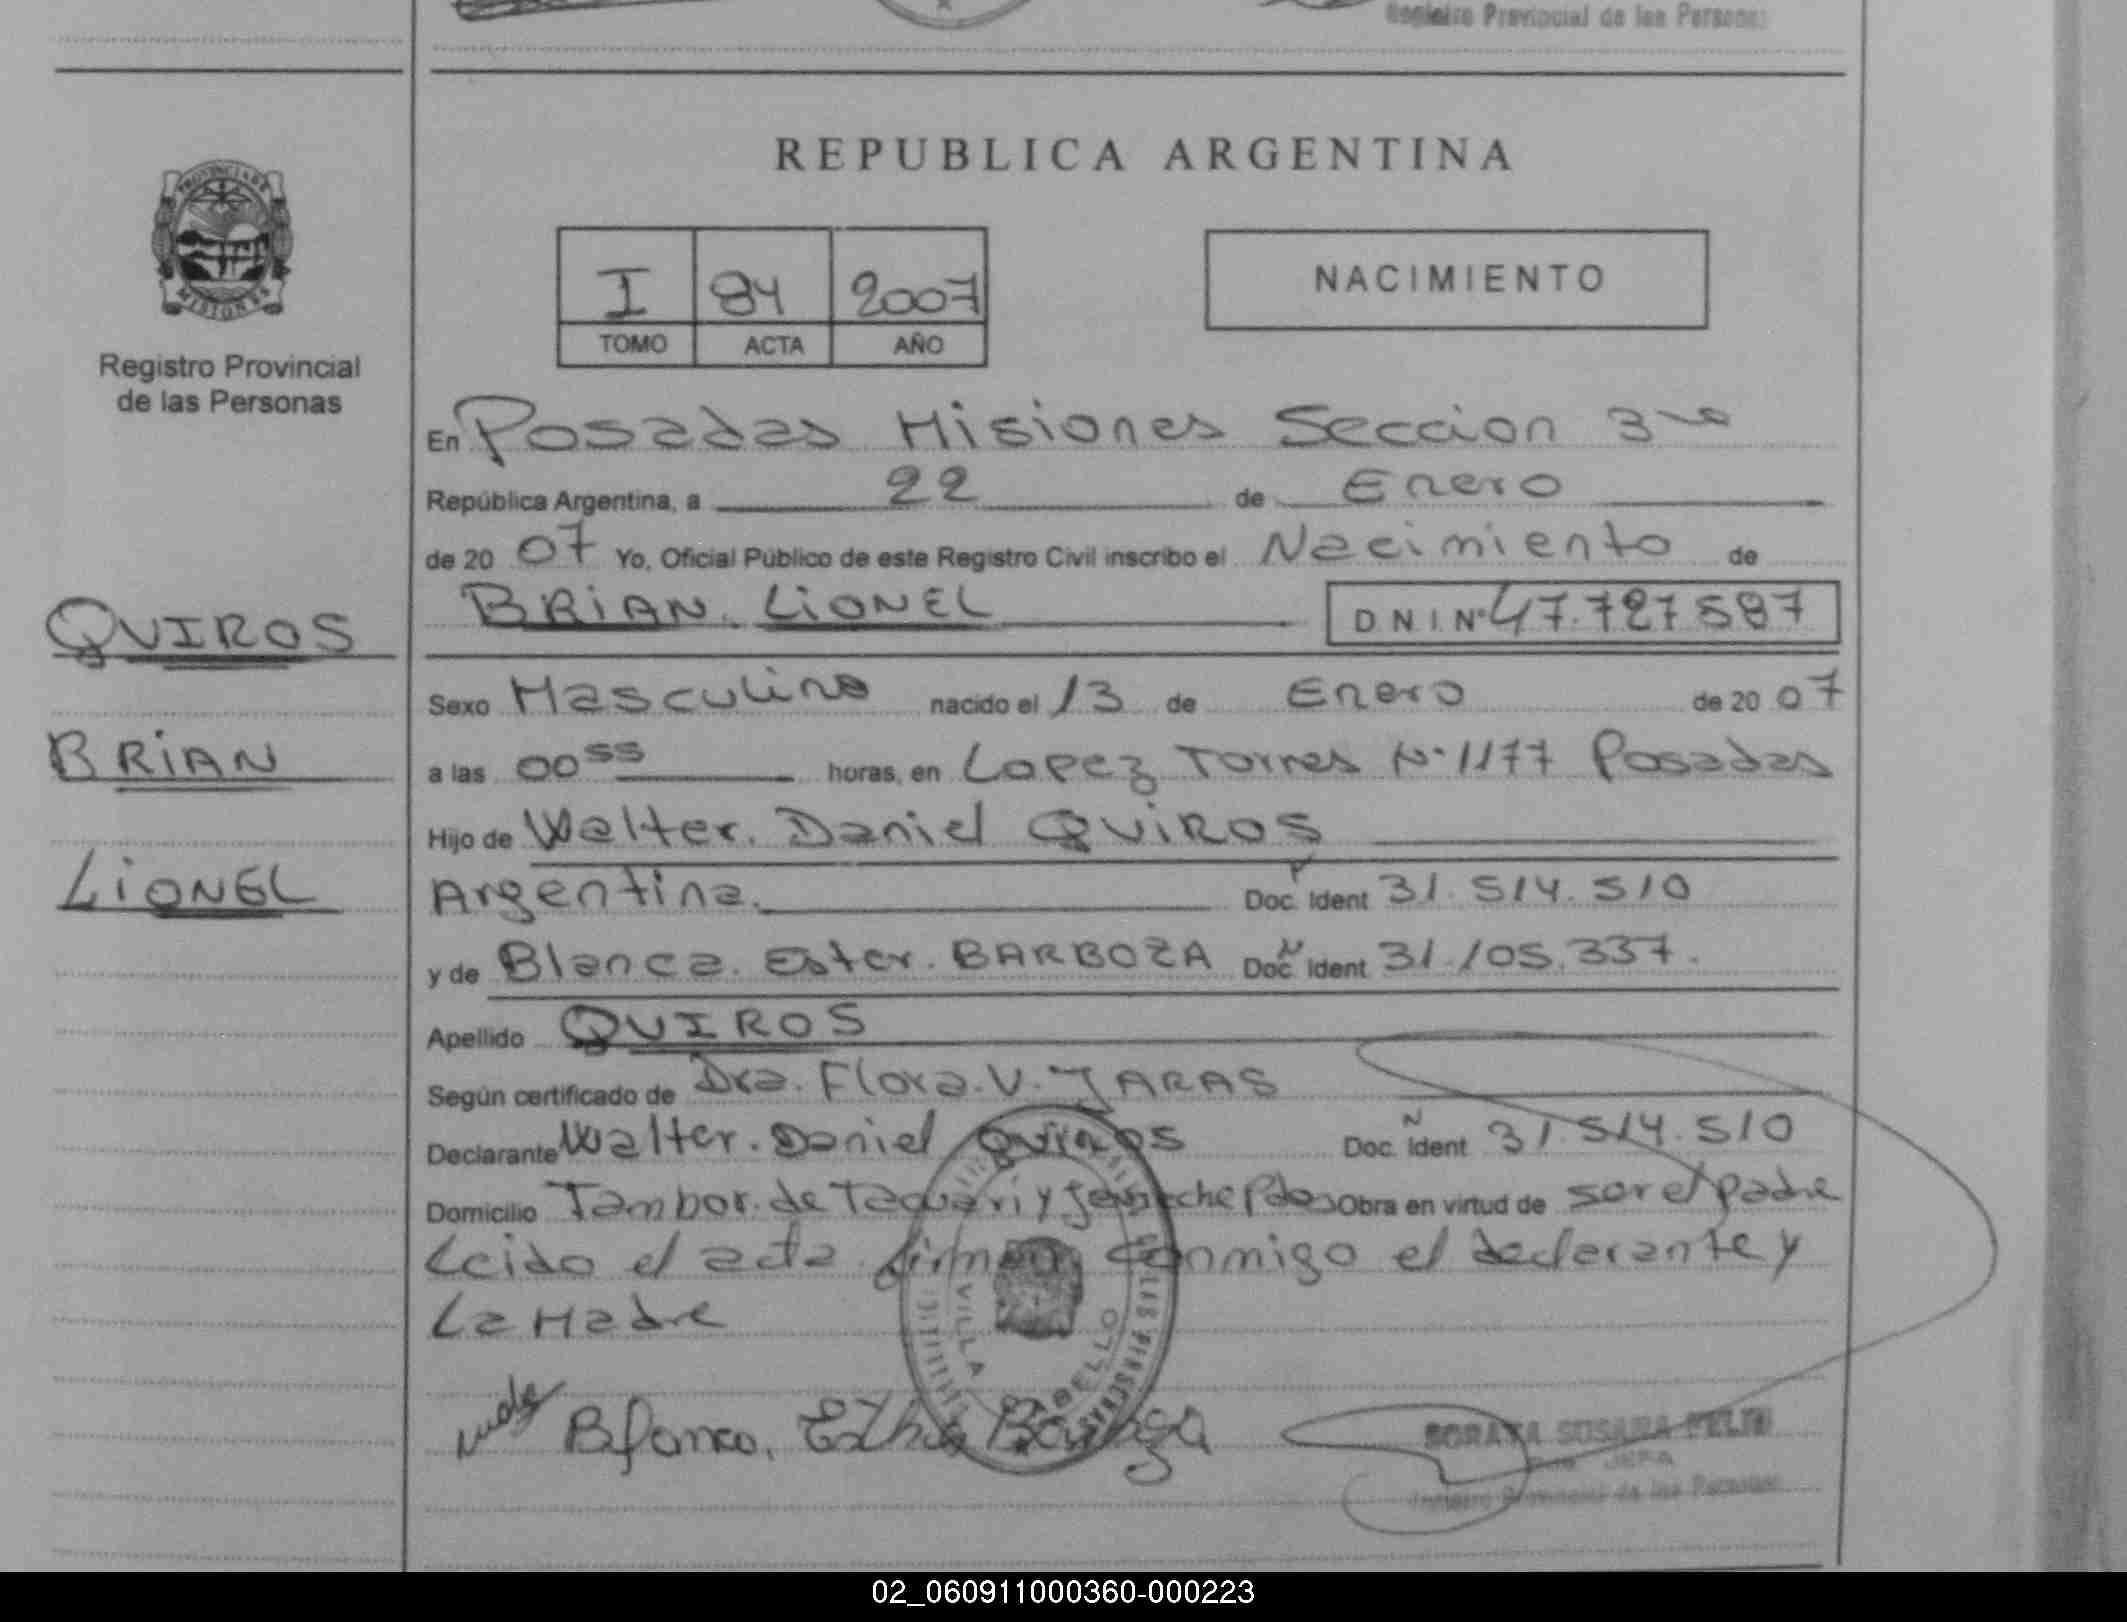 Registro Provincial de las Personas
REPUBLICA ARGENTINA
PROVINCIA DE
MISIONES
Registro Provincial
de las Personas
I 84 2007
TOMO ACTA AÑO
NACIMIENTO
En Posadas Misiones Seccion 3ra
República Argentina, a 22 de Enero
de 20 07 Yo, Oficial Público de este Registro Civil inscribo el Nacimiento de
BRIAN. LIONEL D N I. Nº 47.727 587
QUIROS
BRIAN
LIONEL
Sexo Masculino nacido el 13 de Enero de 20 07
a las 00 55 horas, en Lopez Torres Nº 1177 Posadas
Hijo de Walter. Daniel QUIROS
Argentina. Doc. Ident 31.514.510
y de Blanca. Ester. BARBOZA Doc. Ident 31.105.337.
Apellido QUIROS
Según certificado de Dra. Flora. V. JARAS
Declarante Walter. Daniel QUIROS Doc. Ident 31.514.510
Domicilio Tambor. de Tacuari y Pdas Obra en virtud de ser el padre
Leido el acta firman conmigo el declarante y
La Madre
VILLA CABELLO
Blanca, Esther Barboza
SORAYA SUSANA
JEFA
Registro Provincial de las Personas
02_060911000360-000223